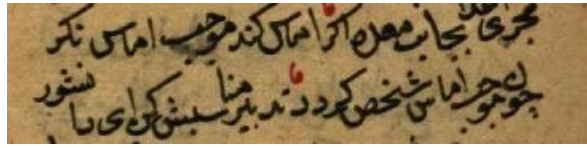 مجرای غذا بجانب معده اگر اماس کند موجب اماس نکر
چون موجب اماس شخص کردد تدبیر مناسبش کن ای با نشور